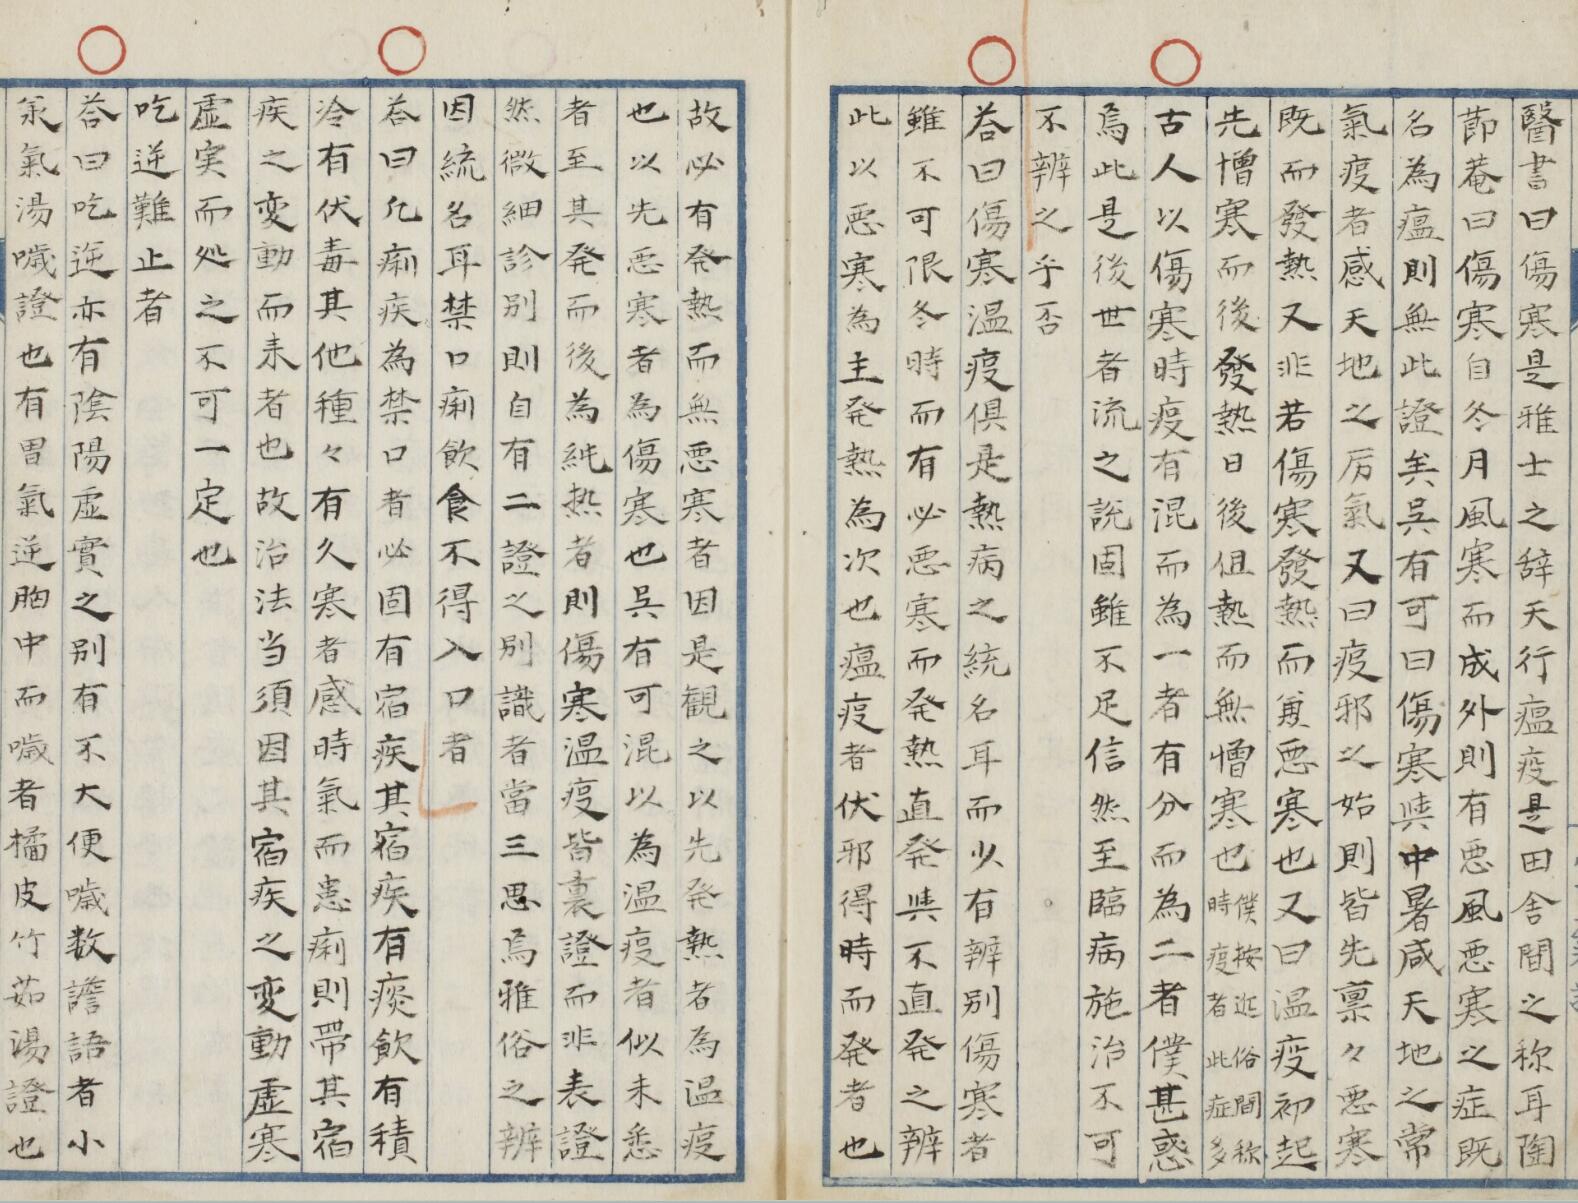 醫書曰傷寒是雅士之辞天行瘟疫是田舎間之称耳陶
節菴曰傷寒自冬月風寒而成外則有悪風悪寒之症既
名為瘟則無此證矣呉有可曰傷寒與中暑咸天地之常
氣疫者感天地之厉氣又曰疫邪之始則皆先稟々悪寒
既而發熱又非若傷寒發熱而兼悪寒也又曰温疫初起
先憎寒而後發熱日後但熱而無憎寒也僕按近俗間称時疫者此症多
古人以傷寒時疫有混而為一者有分而為二者僕甚惑
焉此是後世者流之説固雖不足信然至臨病施治不可
不辨之乎否
荅曰傷寒温疫俱是熱病之統名耳而少有辨別傷寒者
雖不可限冬時而有必悪寒而発熱直発與不直発之辨
此以悪寒為主発熱為次也瘟疫者伏邪得時而発者也
故必有発熱而無悪寒者因是観之以先発熱者為温疫
也以先悪寒者為傷寒也呉有可混以為温疫者似未悉
者至其発而後為純热者則傷寒温疫皆裏證而非表證
然微細診別則自有二證之別識者當三思焉雅俗之辨
因統名耳禁口痢飲食不得入口者
荅曰凢痢疾為禁口者必固有宿疾其宿疾有痰飲有積
冷有伏毒其他種々有久寒者感時氣而患痢則帶其宿
疾之変動而来者也故治法当須因其宿疾之変動虚寒
虚実而処之不可一定也
吃逆難止者
荅曰吃逆亦有陰陽虚實之別有不大便噦数譫語者小
氣湯噦證也有胃氣逆胸中而噦者橘皮竹茹湯證也